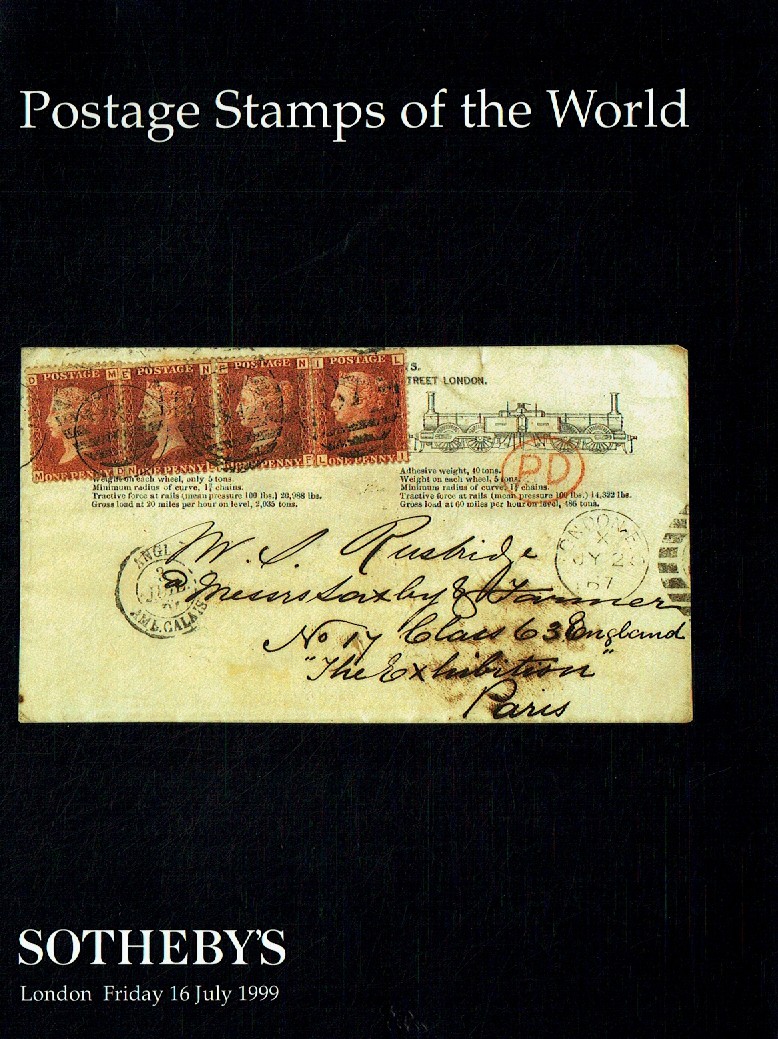 Postage Stamps of the World
D POSTAGE M E POSTAGE N F POSTAGE N I POSTAGE L
M ONE PENNY D N ONE PENNY E N ONE PENNY F L ONE PENNY I
TREET LONDON.
Weight on each wheel, only 5 tons.
Minimum radius of curve, 1½ chains.
Tractive force at rails (mean pressure 100 lbs.) 20,988 lbs.
Gross load at 20 miles per hour on level, 2,035 tons.
Adhesive weight, 40 tons.
Weight on each wheel, 5 tons.
Minimum radius of curve, 1½ chains.
Tractive force at rails (mean pressure 100 lbs.) 14,322 lbs.
Gross load at 60 miles per hour on level, 486 tons.
PD
LONDON
X
JY 2
67
ANGL
AMB. CALAIS
W. S. Rusbridge
Messrs Saxby & Farmer
No 17 Class 63 England
"The Exhibition"
Paris
SOTHEBY'S
London Friday 16 July 1999